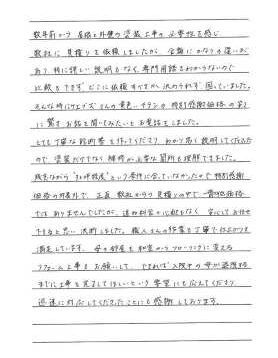 数年前から 屋根と外壁の塗装工事の必要性を感じ
数社に見積りを依頼しましたが、金額にかなりの違いが
あり、特に詳しい説明もなく、専門用語もわからないので
比較もできず どこに依頼すべきか決められず 困っていました。
そんな時に さんの黄色いチラシの特別感謝価格の安さ
に驚き お話を聞いてみたいとお電話をしました。
とても丁寧な診断書を作ってくださり、わかり易く説明してくださった
ので、塗装だけでなく補修が必要な箇所も理解できました。
残念ながら という条件に合っていなかったので 特別感謝
価格の対象外で、正直 数社からの見積りの中で一番低価格
ではありませんでしたが、 心配もなく 安心してお任せ
できると思い 決めました。職人さんの作業も丁寧で仕上がりも
満足しています。母の部屋を和室からフローリングに変える
リフォーム工事もお願いして、できれば入院中の母が退院する
までに工事を完了してほしいという要望にも応えてくださり
迅速に対応してくださったことにも感謝しております。